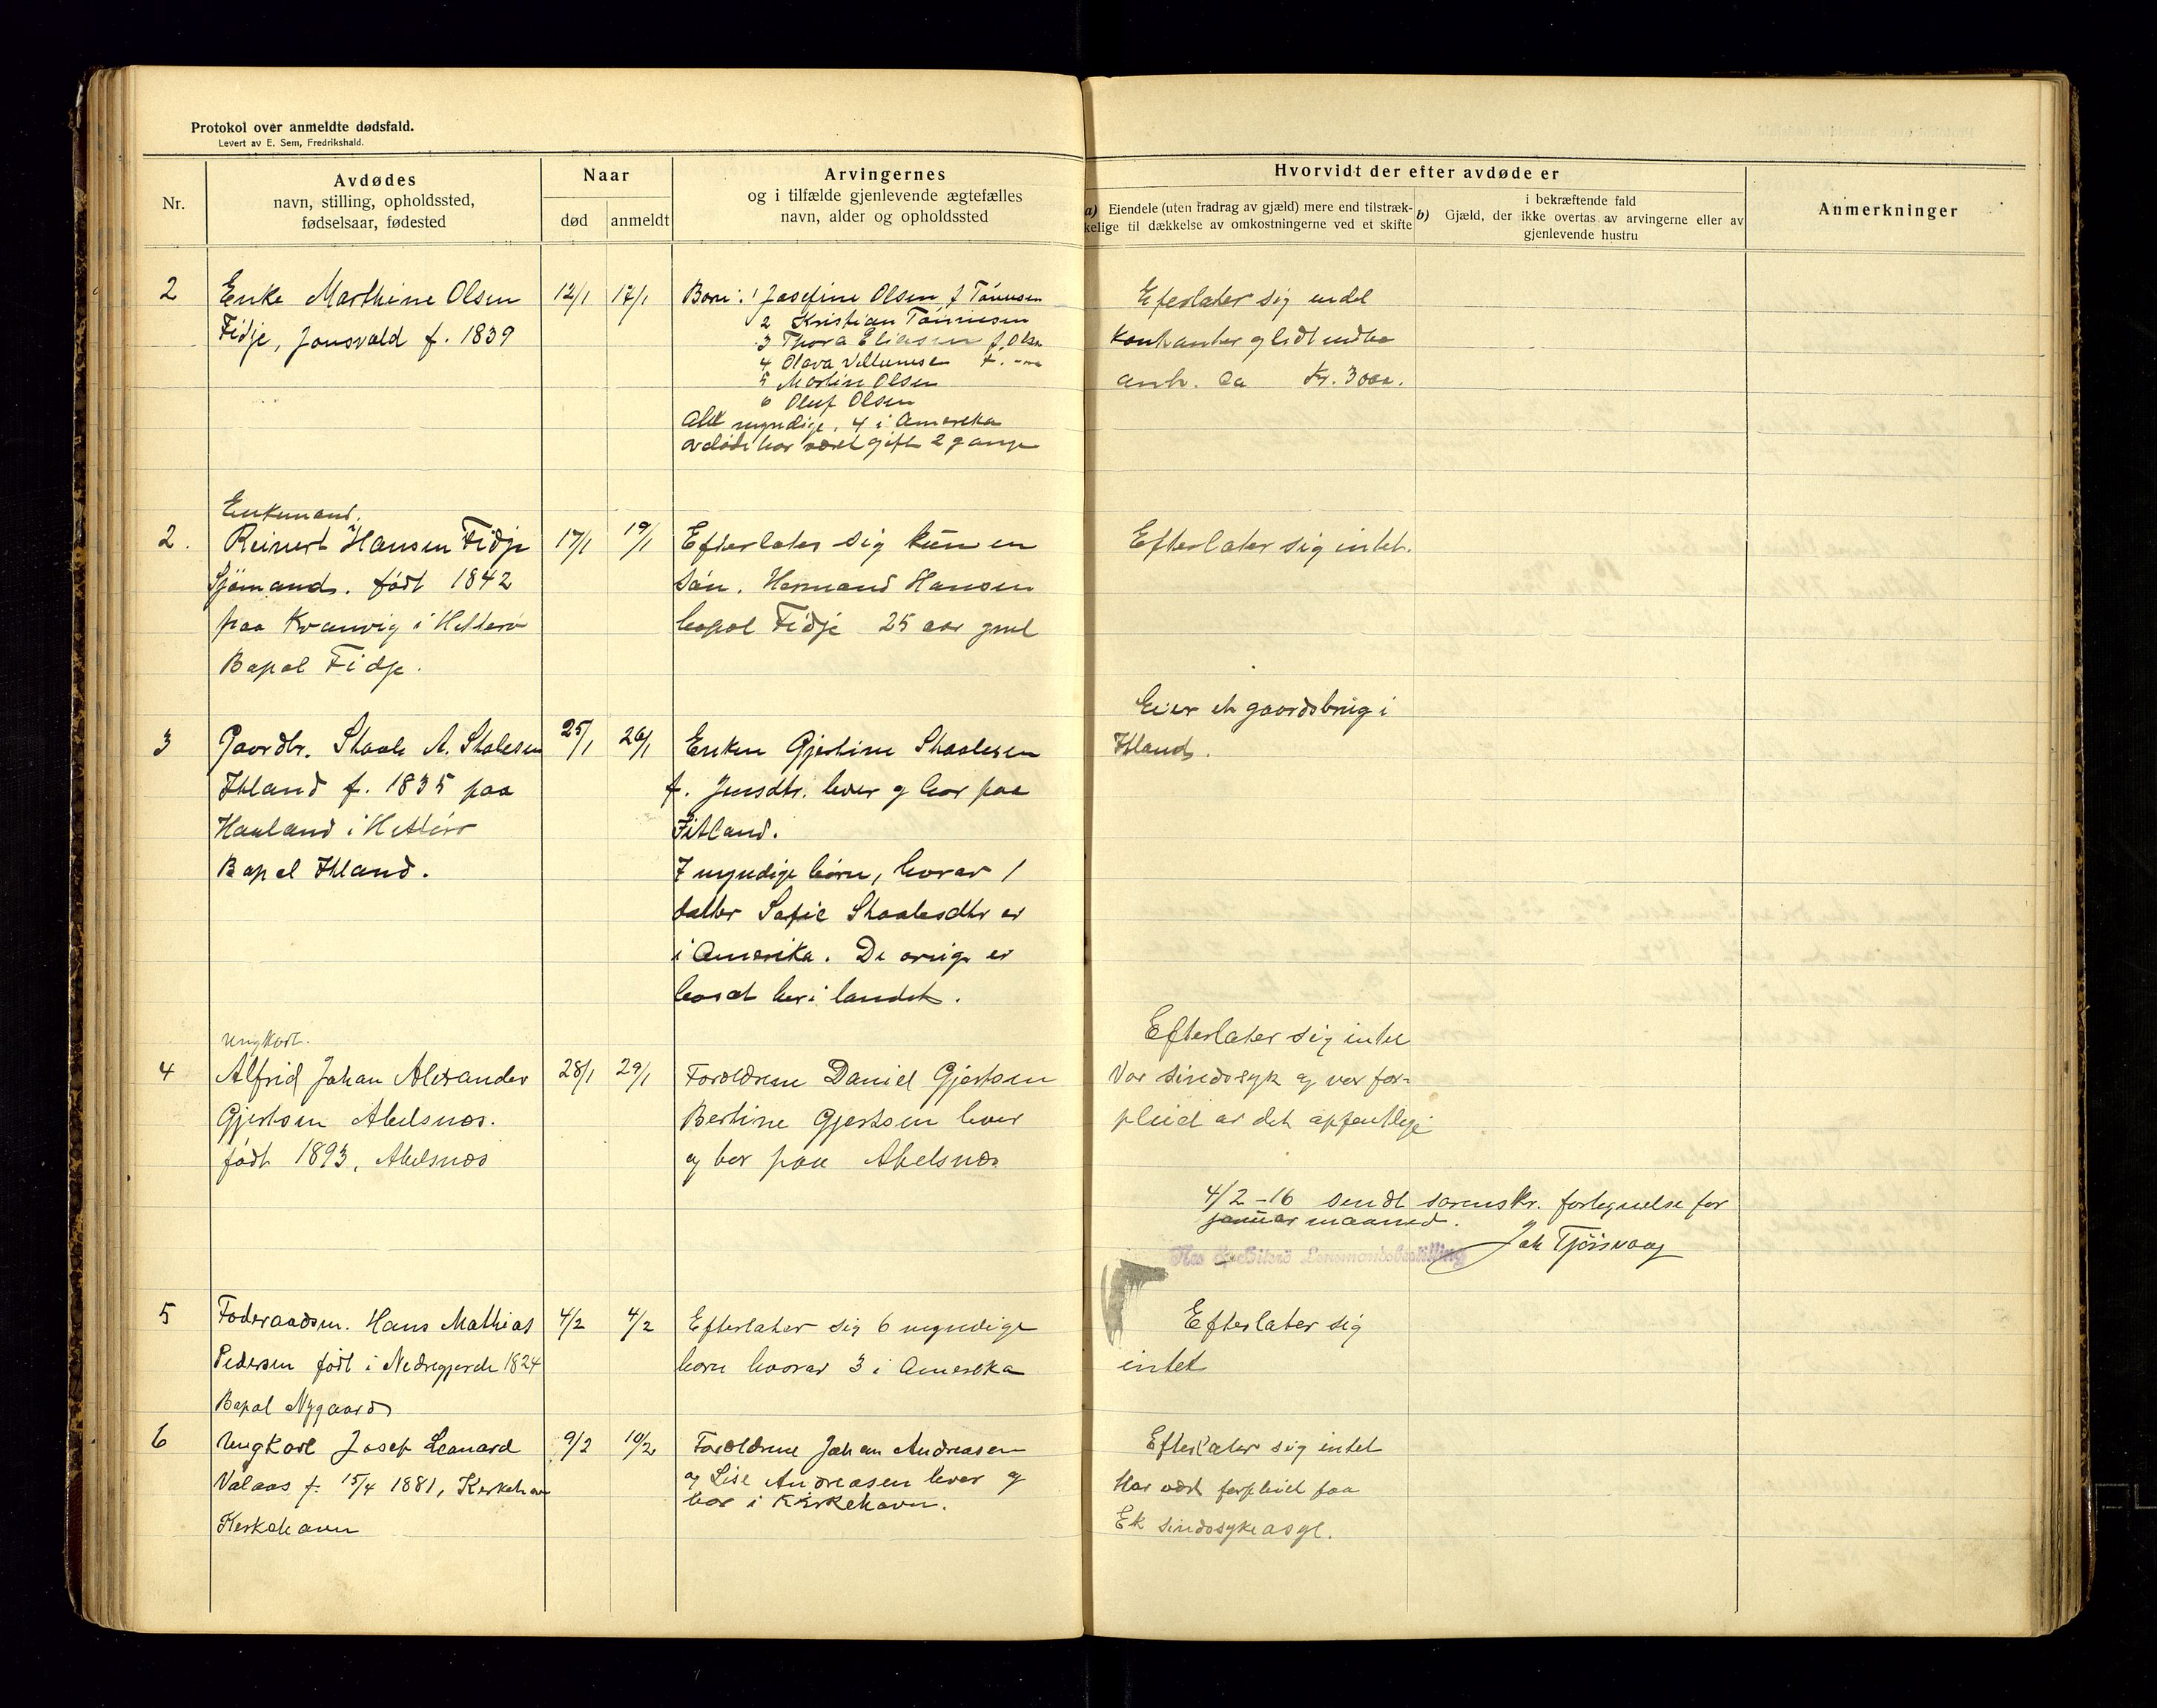 Protokol over anmeldte dødsfald.
Levert av E. Sem, Fredrikshald.
Nr.
Avdødes
navn, stilling, opholdssted,
fødselsaar, fødested
Naar
død
anmeldt
Arvingernes
og i tilfælde gjenlevende ægtefælles
navn, alder og opholdssted
Hvorvidt der efter avdøde er
a) Eiendele (uten fradrag av gjæld) mere end tilstræk-
kelige til dækkelse av omkostningerne ved et skifte
b) Gjæld, der
i bekræftende fald
ikke overtas av arvingerne eller av
gjenlevende hustru
Anmerkninger
2
Enke Marthine Olsen
Fidje, Jonsvald f. 1839
12/1
17/1
Børn: 1 Josefine Olsen f Tönnesen
2 Kristian Tönnesen
3 Thora Eliasen f. Olsen
4 Olava Villumsen f.
5 Martin Olsen
6 Oluf Olsen
Alle myndige, 4 i Amerika
avdöde har været gift 2 gange
Efterlater sig endel
kontanter og lidt indbo
anh. ca Kr. 3000.
2.
Enkemand.
Reinert Hansen Fidje
Sjömand. födt 1842
paa Kvanvig i Hitterö
Bopæl Fidje.
17/1
19/1
Efterlater sig kun en
sön. Hermand Hansen
bopæl Fidje 25 aar gml
Efterlater sig intet.
3
Gaardbr. Staale A. Stalesen
Itland f. 1835 paa
Hauland i Hitterö
Bopæl Itland.
25/1
26/1
Enken Gjertine Staalesen
f. Jensdtr. lever og bor paa
Fitland.
7 myndige börn, horav 1
datter Sofie Staalesdtr er
i Amerika. De övrige er
bosat her i landet.
Eier et gaardsbrug i
Itland.
4
ungkarl.
Alfrid Johan Alexander
Gjertsen Abelsnes.
födt 1893, Abelsnes
28/1
29/1
Forældrene Daniel Gjertsen
Bertine Gjertsen lever
og bor paa Abelsnes
Efterlater sig intet
Var sindssyk og var for-
pleid av det offentlige
4/2 -16 sendt sorenskr. fortegnelse for
januar maaned.
Joh Tjörsvaag
Nes og Hiterö Lensmandsbestilling
5
Foderaadsm. Hans Mathias
Pedersen födt i Nedregjerde 1824
Bopæl Nygaard
4/2
4/2
Efterlater sig 6 myndige
börn hvorav 3 i Amerika
Efterlater sig
intet
6
Ungkarl Josef Leonard
Valaas f. 15/4 1881, Kirkehavn
Kirkehavn
9/2
10/2
Forældrene Johan Andreasen
og Lise Andreasen lever og
bor i Kirkehavn.
Efterlater sig intet
Har vært forpleiet paa
Ek sindssykeasyl.